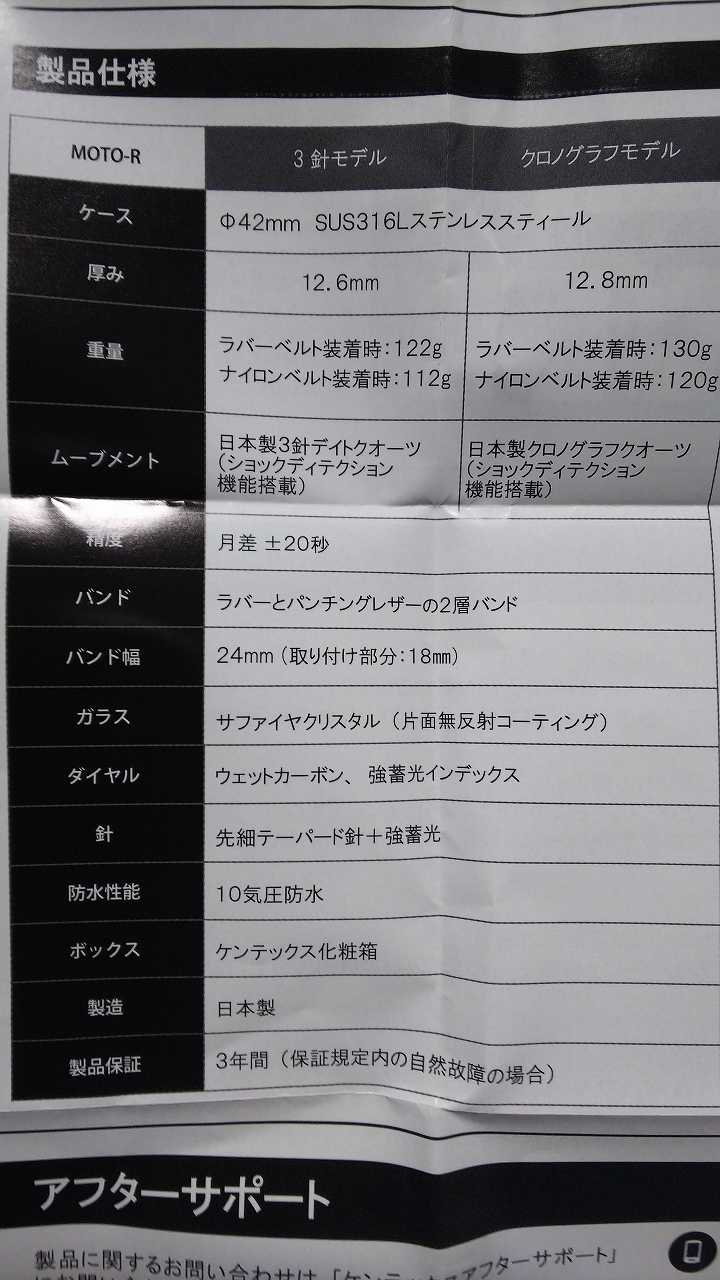 製品仕様
MOTO-R 3針モデル クロノグラフモデル
ケース Φ42mm SUS316Lステンレススティール
厚み 12.6mm 12.8mm
重量 ラバーベルト装着時:122g ラバーベルト装着時:130g
ナイロンベルト装着時:112g ナイロンベルト装着時:120g
ムーブメント 日本製3針デイトクオーツ 日本製クロノグラフクオーツ
(ショックディテクション (ショックディテクション
機能搭載) 機能搭載)
精度 月差 ±20秒
バンド ラバーとパンチングレザーの2層バンド
バンド幅 24mm (取り付け部分:18mm)
ガラス サファイヤクリスタル (片面無反射コーティング)
ダイヤル ウェットカーボン、 強蓄光インデックス
針 先細テーパード針+強蓄光
防水性能 10気圧防水
ボックス ケンテックス化粧箱
製造 日本製
製品保証 3年間 (保証規定内の自然故障の場合)
アフターサポート
製品に関するお問い合わせは、「ケンテックスアフターサポート」